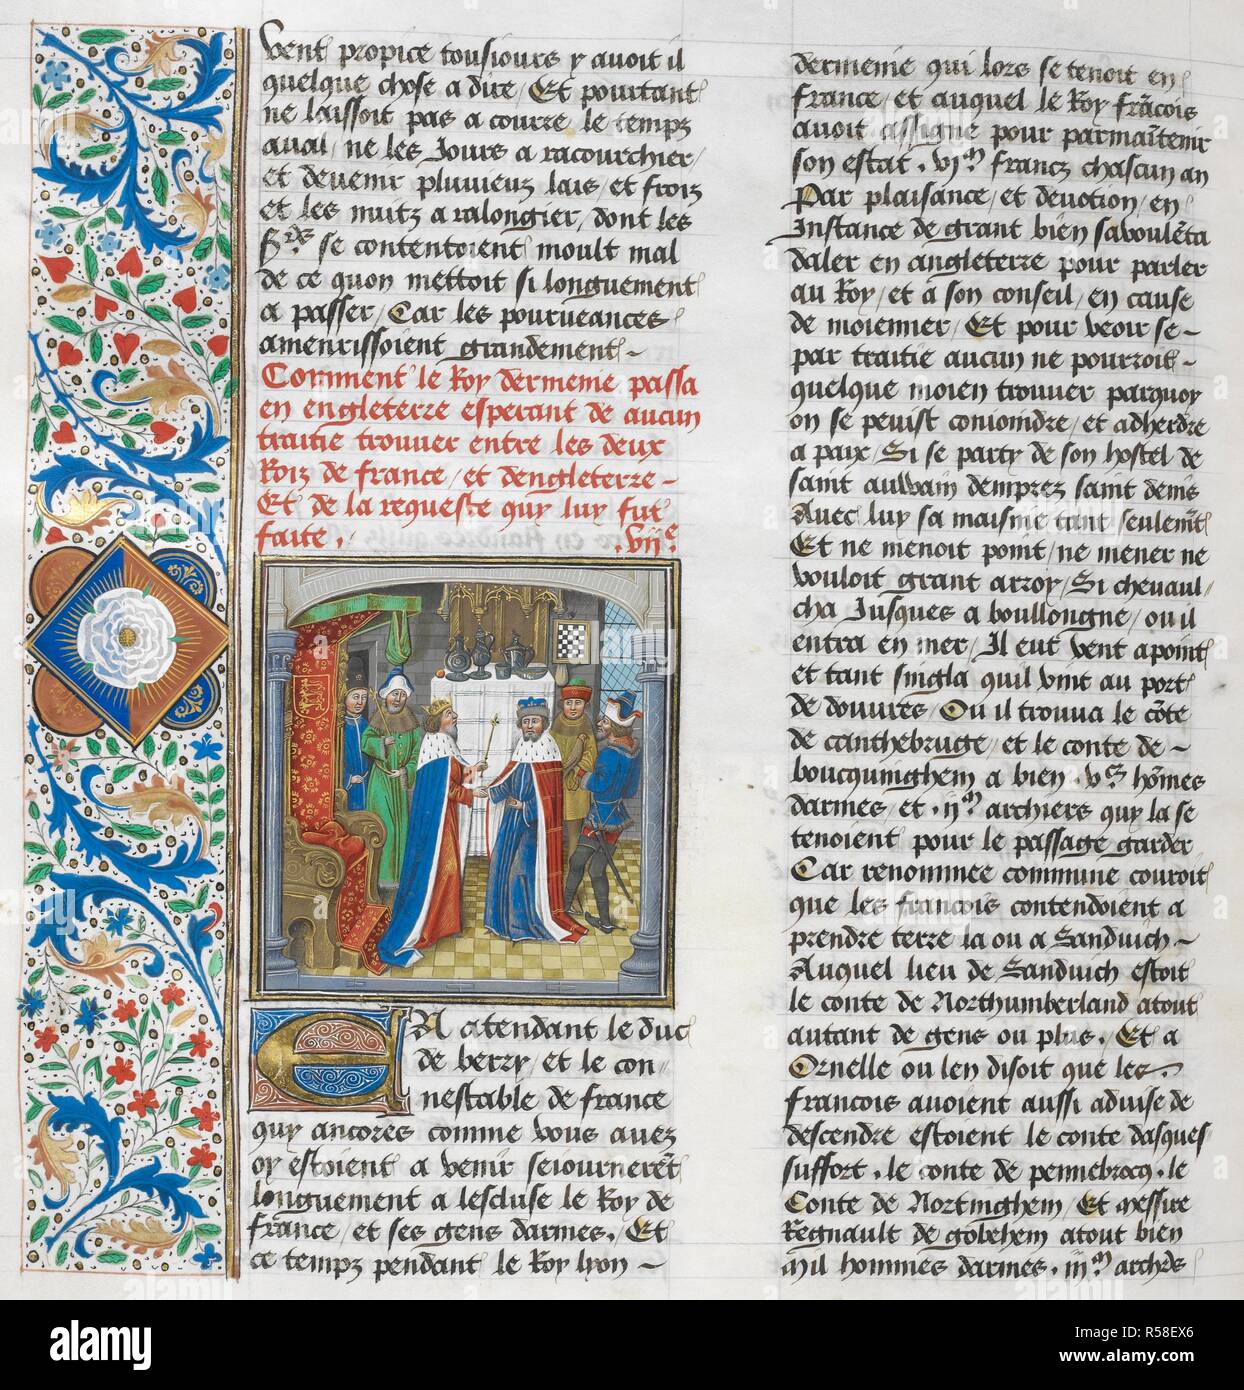 vent propice tousiours y auoit il
quelque chose a dire / Et pourtant
ne laissoit pas a courre le temps
aual / ne les Jours a racourchier /
et deuenir pluuieux lais / et froiz
et les nuitz a ralongier / dont les
se contentoient moult mal
de ce quon mettoit si longuement
a passer / Car les pourueances
amenrissoient grandement ~
Comment le Roy dermenie passa
en engleterre esperant de aucun
traitie trouuer entre les deux
Roiz de france / et dengleterre ~
Et de la requeste quy luy fut
faite . .vii.e
EN atendant le duc
de berry / et le con-
nestable de france
quy ancores comme vous auez
oy estoient a venir seiournerẽt
longuement a lescluse le Roy de
france / et ses gens darmes . Et
ce temps pendant le Roy lyon ~
dermenie qui lors se tenoit en
france / et auquel le Roy frãcois
auoit assigne pour parmaĩtenir
son estat . vi.m francz chascun an
Par plaisance / et deuotion / en
Instance de grant bien sa voulẽta
daler en angleterre pour parler
au Roy / et a son conseil / en cause
de moienner / Et pour veoir se ~
par traitie aucun ne pourroit ~
quelque moien trouuer parquoy
on se peuist conioindre / et adherdre
a paix / Si se party de son hostel de
saint auwain dempres saint denis
Auec luy sa maisnie tant seulemt
Et ne menoit point / ne mener ne
vouloit grant arroy / Si cheuaul-
cha Jusques a boullongne / ou il
entra en mer / Il eut vent a point
et tant singla quil vint au port
de douures / Ou il trouua le cõte
de canthebruge / et le conte de ~
boucquinghem a bien . v.c hõmes
darmes / et . ii.m archiers quy la se
tenoient pour le passage garder
Car renommee commune couroit
que les francois contendoient a
prendre terre la ou a Sanduich ~
Auquel lieu de Sanduich estoit
le conte de Northumberland atout
autant de gens ou plus . Et a
Ornelle ou len disoit que les
francois auoient aussi aduise de
descendre estoient le conte dasques
suffort . le conte de pennebrocq . le
Conte de Nortinghem / Et messire
Regnault de gobehem atout bien
mil hommes darmes . iii.m archrs
alamy
Image ID: R58EX6
www.alamy.com